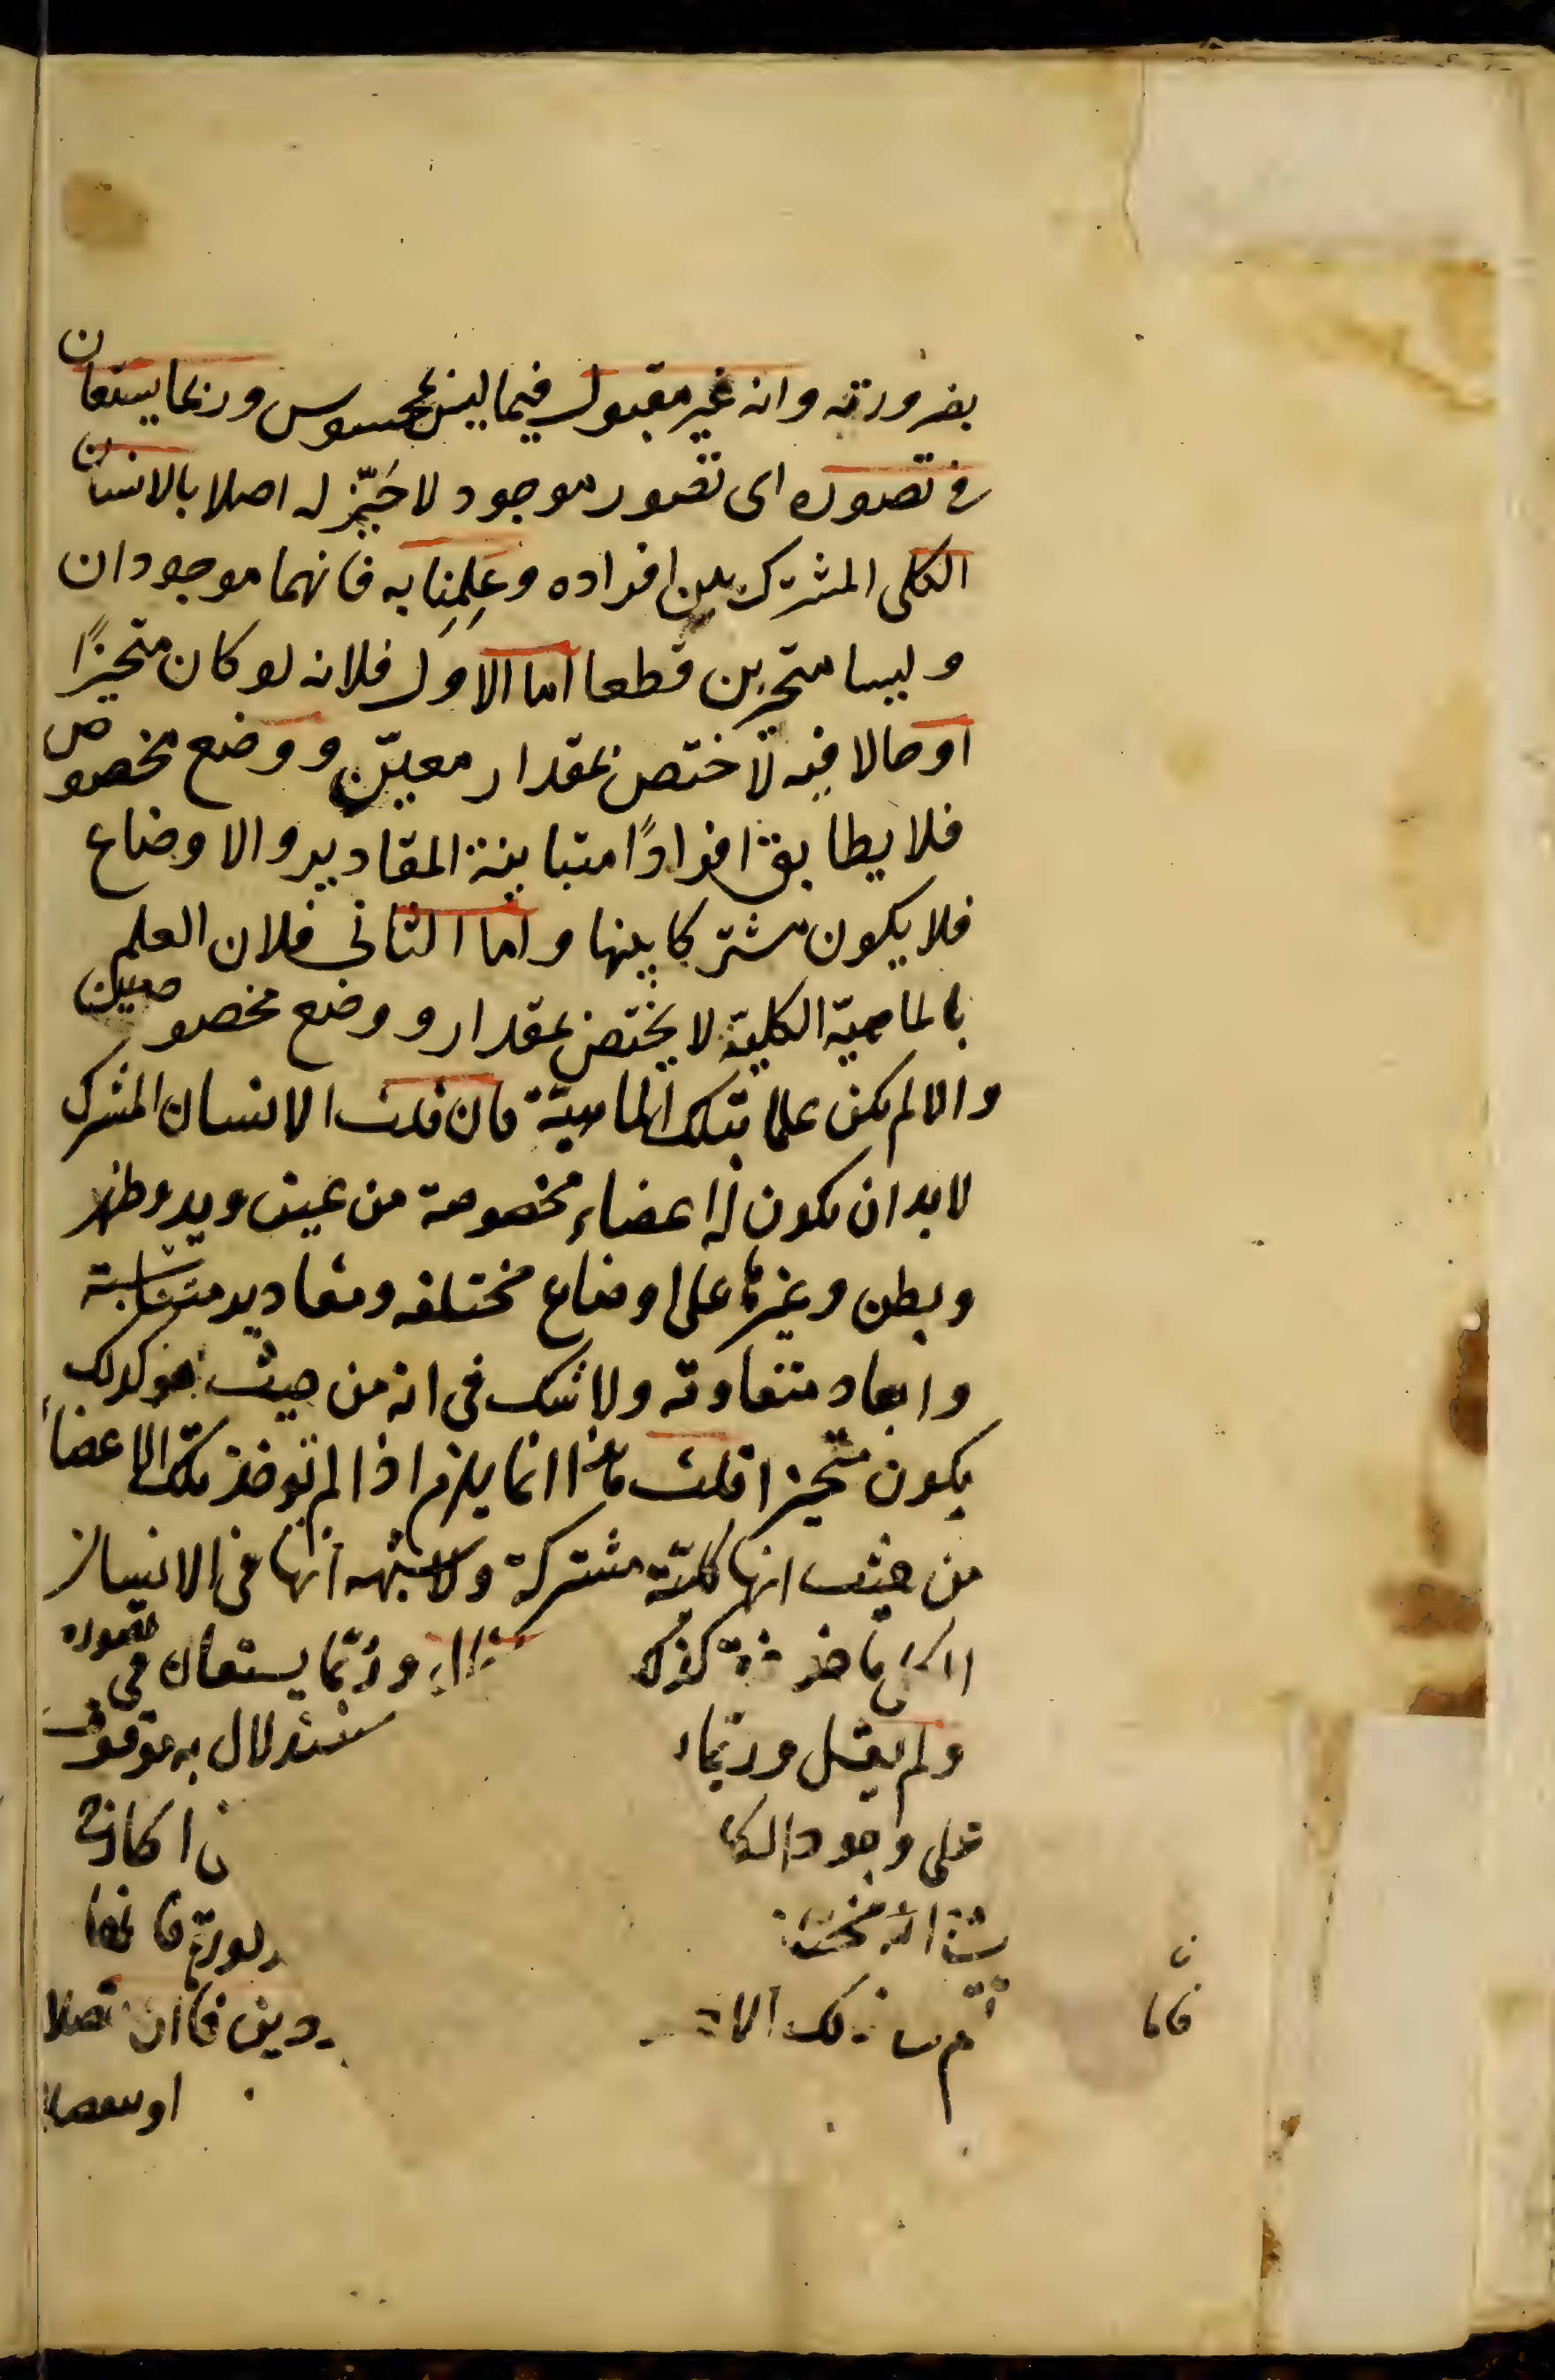 بضرورته وانه غير مقبول فيما ليس بمحسوس وربما يستعان
فى تصوره اى تصور موجود لا حَيّز له اصلا بالانسان
الكلى المشترك بين افراده وعَلِمنا به فانهما موجودان
وليسا متحيزين قطعا اما الاول فلانه لو كان متحيزًا
او حالا فيه لاختص بمقدار معيّن ووضع مخصوص
فلا يطابق افرادًا متباينة المقادير والاوضاع
فلا يكون مشتركا بينها واما الثانى فلان العلم
بالماهية الكلية لا يختص بمقدار ووضع مخصوصين
والا لم يكن علما بتلك الماهية فان قلت الانسان المشترك
لا بد ان يكون له اعضاء مخصوصة من عين ويد وظهر
وبطن وغيرها على اوضاع مختلفه ومقادير متناسبة
وابعاد متفاوته ولا شك فى انه من حيث هو كذلك
يكون متحيزا قلت هذا انما يلزم اذا لم توخذ تلك الاعضاء
من حيث انها كلية مشتركة ولا شبهه انها فى الانسان
ماخوذة كذلك وربّما يستعان فى تصوره
ولم يقل وربّما ستدلال به موقوف
على وجود
فانها
دين فان
او